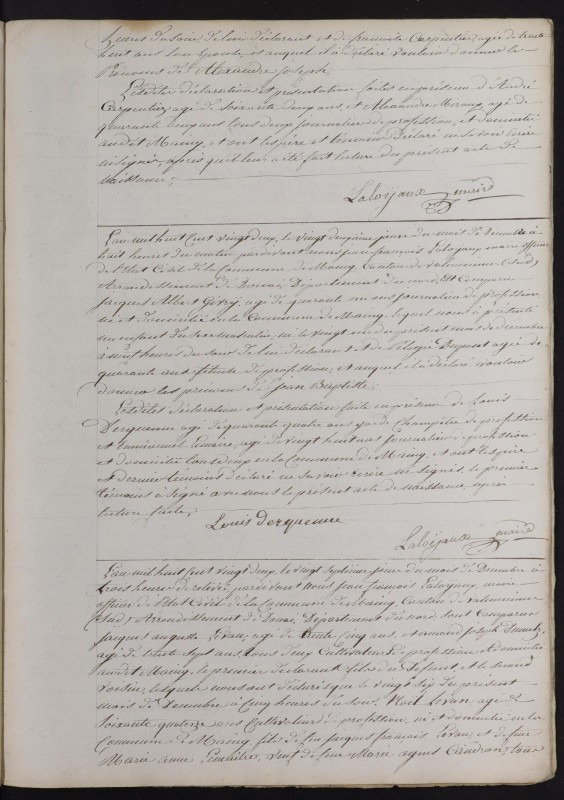 heures du soir de lui déclarant et de Carpentier agée de trente
huit ans son épouse, et auquel il a déclaré vouloir donner les
Prénoms de Alexandre Joseph.
Lesdites déclaration et présentation faites en présence d'André
Carpentier, agé de soixante deux ans, et Alexandre Moreau, agé de
quarante cinq ans tous deux journaliers de profession, et domiciliés
audit Maing, et ont les père et témoins Déclaré ne savoir écrire
ni signer, après qu'il leur a été fait lecture du présent acte de
naissance;
Laloÿaux maire
L'an mil huit Cent vingt deux, le vingt deuxième jour du mois de Décembre à
huit heures du matin pardevant nous jean françois Laloyaux, maire officier
de l'état Civil de la Commune de Maing, Canton de Valenciennes (Sud)
Arrondissement de Douai, Département du nord, Est Comparu
Jacques Albert agé de quarante un ans journalier de profession
né et domicilié en la Commune de Maing, lequel nous a présenté
un enfant du sexe masculin, né le vingt un du présent mois de décembre
à neuf heures du soir de lui déclarant et de Dupont agée de
quarante ans de profession, et auquel il a déclaré vouloir
donner les prénoms de Jean Baptiste.
Lesdites déclaration et présentation faite en présence de Louis
Derquenne agé de quarante quatre ans garde Champêtre de profession
et Lemaire, agé de vingt huit ans journalier de profession
et domiciliés tous deux en la Commune de Maing, et ont les père
et dernier témoin déclaré ne savoir écrire ni signer, le premier
témoin a signé avec nous le présent acte de naissance, après
lecture faite;
Louis Derquenne
Laloÿaux maire
L'an mil huit Cent vingt deux, le vingt septième jour du mois de Décembre à
trois heures de relevée, pardevant nous jean françois Laloyaux maire
officier de l'état Civil de la Commune de Maing Canton de Valenciennes
Sud, Arrondissement de Douai, Département du nord sont Comparus
Jacques auguste Levan, agé de trente Cinq ans, et amand Joseph
agé de trente sept ans, tous deux Cultivateurs de profession et domiciliés
audit Maing, le premier déclarant fils du défunt, et le second
voisin, lesquels nous ont déclaré que le vingt six du présent
mois de Décembre à Cinq heures du soir, Noël Levan agé de
soixante quatorze ans Cultivateur de profession, né et domicilié en la
Commune de Maing, fils de feu Jacques françois Levan, et de feue
Marie anne Lemaître, veuf de feue Marie agnès tous